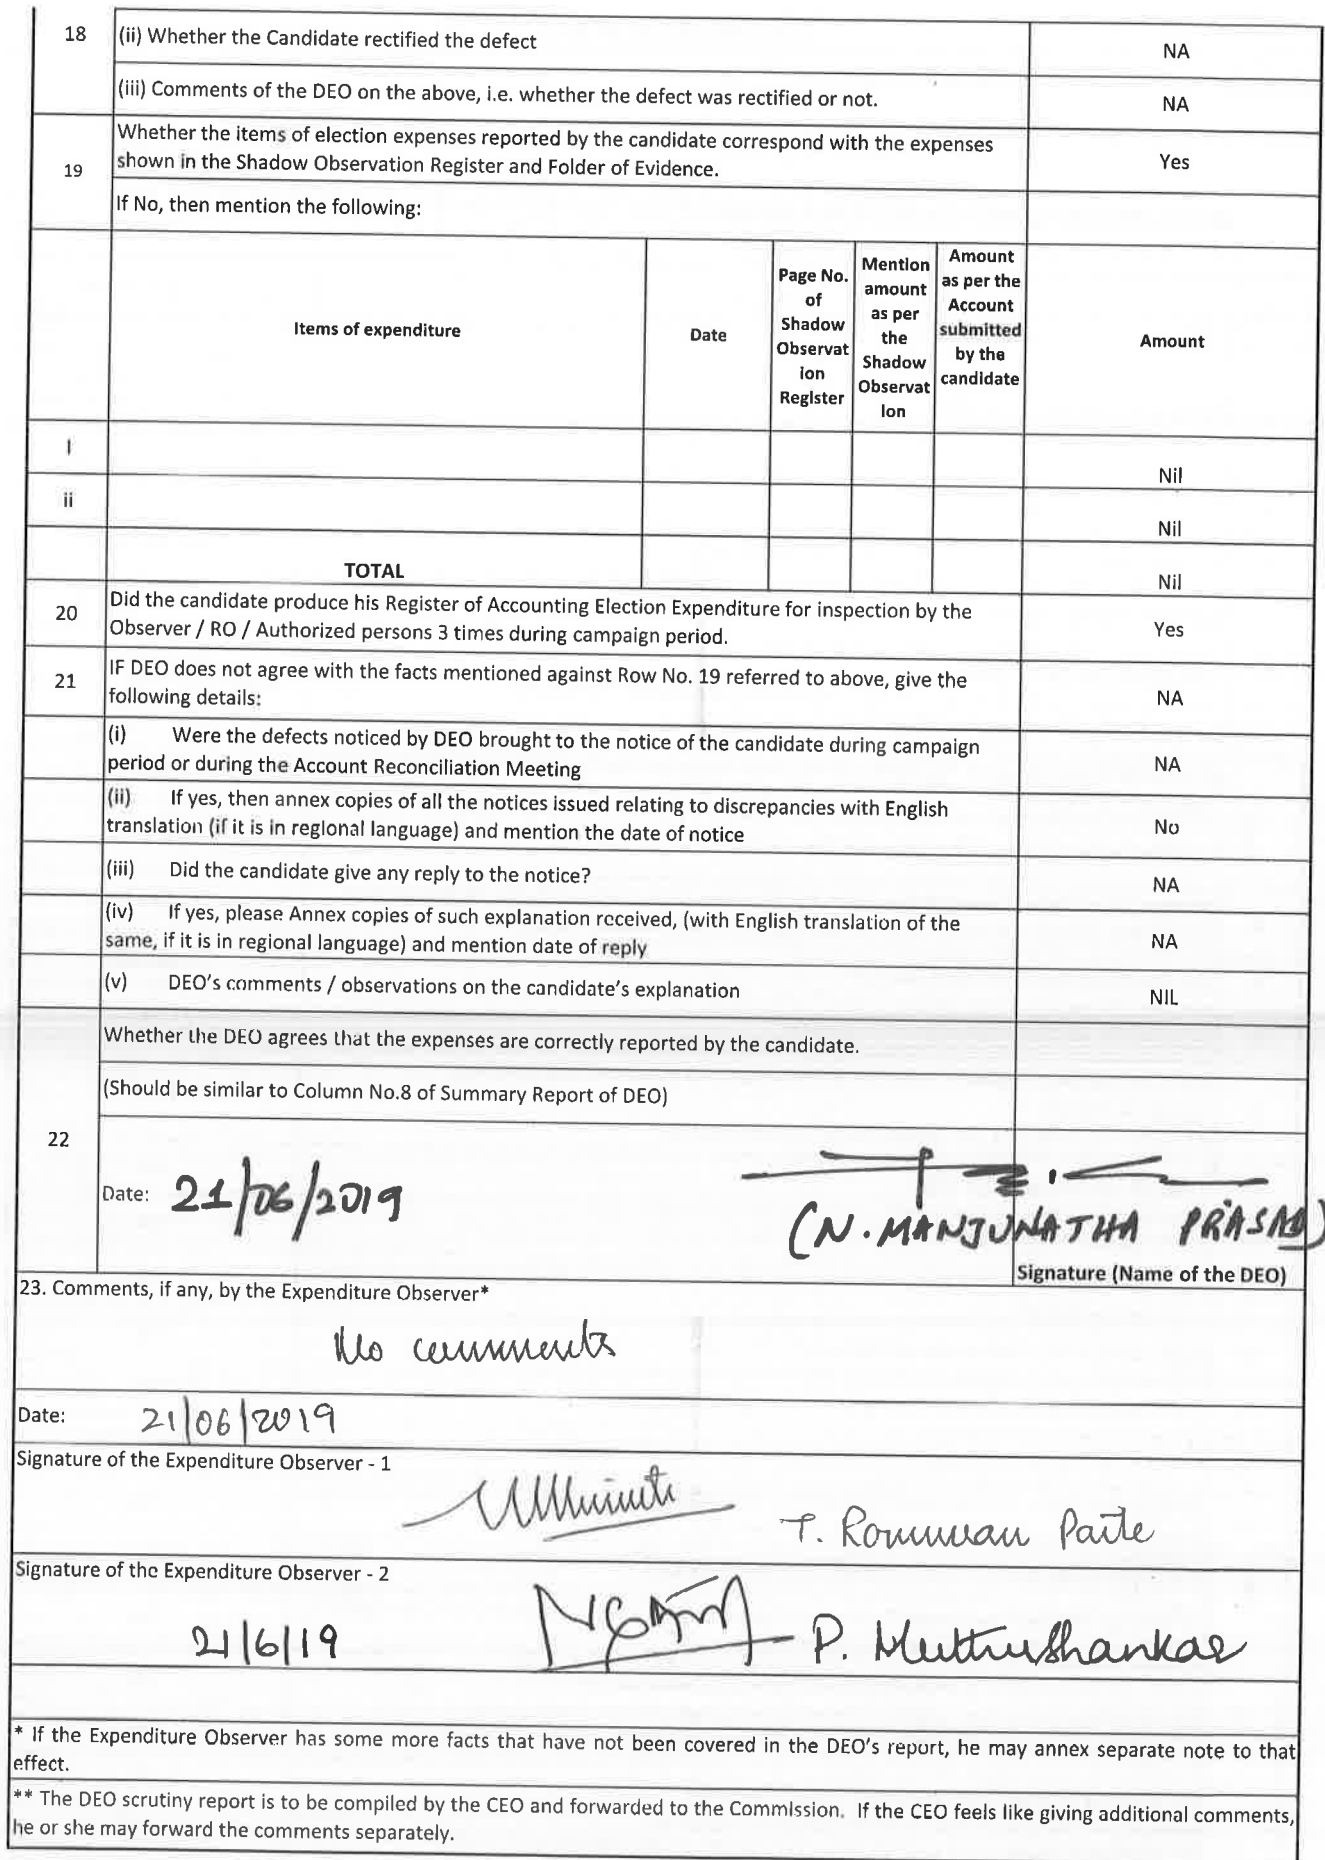 18
(ii) Whether the Candidate rectified the defect
NA
(iii) Comments of the DEO on the above, i.e. whether the defect was rectified or not.
NA
19
Whether the items of election expenses reported by the candidate correspond with the expenses
shown in the Shadow Observation Register and Folder of Evidence.
Yes
If No, then mention the following:
Items of expenditure
Date
Page No.
of
Shadow
Observat
ion
Register
Mention
amount
as per
the
Shadow
Observat
ion
Amount
as per the
Account
submitted
by the
candidate
Amount
I
Nil
ii
Nil
TOTAL
Nil
20
Did the candidate produce his Register of Accounting Election Expenditure for inspection by the
Observer / RO / Authorized persons 3 times during campaign period.
Yes
21
IF DEO does not agree with the facts mentioned against Row No. 19 referred to above, give the
following details:
NA
(i) Were the defects noticed by DEO brought to the notice of the candidate during campaign
period or during the Account Reconciliation Meeting
NA
(ii) If yes, then annex copies of all the notices issued relating to discrepancies with English
translation (if it is in regional language) and mention the date of notice
No
(iii) Did the candidate give any reply to the notice?
NA
(iv) If yes, please Annex copies of such explanation received, (with English translation of the
same, if it is in regional language) and mention date of reply
NA
(v) DEO's comments / observations on the candidate's explanation
NIL
22
Whether the DEO agrees that the expenses are correctly reported by the candidate.
(Should be similar to Column No.8 of Summary Report of DEO)
Date: 21/06/2019
(N. MANJUNATHA PRASAD)
Signature (Name of the DEO)
23. Comments, if any, by the Expenditure Observer*
No comments
Date: 21/06/2019
Signature of the Expenditure Observer - 1
T. Romuan Paite
Signature of the Expenditure Observer - 2
21/6/19
P. Muthushankar
* If the Expenditure Observer has some more facts that have not been covered in the DEO's report, he may annex separate note to that
effect.
** The DEO scrutiny report is to be compiled by the CEO and forwarded to the Commission. If the CEO feels like giving additional comments,
he or she may forward the comments separately.